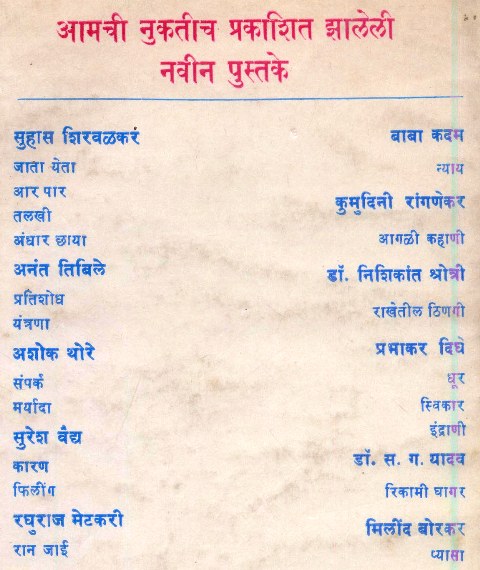 आमची नुकतीच प्रकाशित झालेली
नवीन पुस्तके
सुहास शिरवळकर
जाता येता
आर पार
तलखी
अंधार छाया
अनंत तिबिले
प्रतिशोध
यंत्रणा
अशोक थोरे
संपर्क
मर्यादा
सुरेश वैद्य
कारण
फिलींग
रघुराज मेटकरी
रान जाई
बाबा कदम
न्याय
कुमुदिनी रांगणेकर
आगळी कहाणी
डॉ. निशिकांत श्रोत्री
राखेतील ठिणगी
प्रभाकर दिघे
धूर
स्विकार
इंद्राणी
डॉ. स. ग. यादव
रिकामी घागर
मिलींद बोरकर
प्यासा